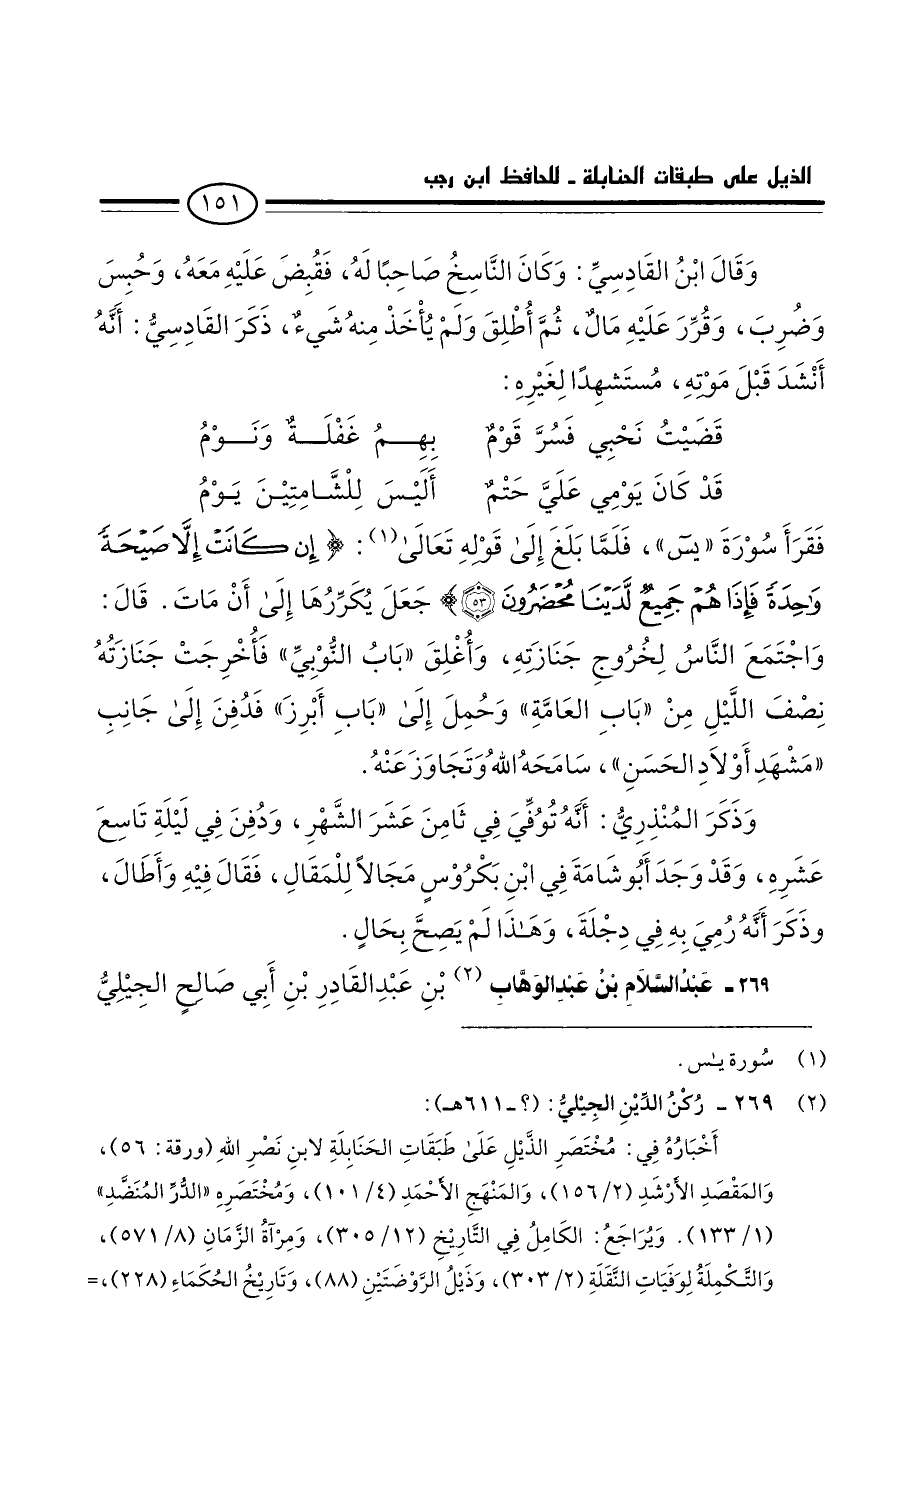 الذيل على طبقات الحنابلة ـ للحافظ ابن رجب
١٥١
وَقَالَ ابْنُ القَادِسِيِّ: وَكَانَ النَّاسِخُ صَاحِبًا لَهُ، فَقُبِضَ عَلَيْهِ مَعَهُ، وَحُبِسَ
وَضُرِبَ، وَقُرِّرَ عَلَيْهِ مَالٌ، ثُمَّ أُطْلِقَ وَلَمْ يُأْخَذْ مِنهُ شَيءٌ، ذَكَرَ القَادِسِيُّ: أَنَّهُ
أَنْشَدَ قَبْلَ مَوْتِهِ، مُستَشهِدًا لِغَيْرِهِ:
قَضَيْتُ نَحْبِي فَسُرَّ قَوْمٌ بِهِـــمُ غَفْلَـــةٌ وَنَـــوْمُ
قَدْ كَانَ يَوْمِي عَلَيَّ حَتْمٌ أَلَيْسَ لِلْشَّـامِتِيْـنَ يَـوْمُ
فَقَرَأَ سُوْرَةَ «يسۤ»، فَلَمَّا بَلَغَ إِلَىٰ قَوْلِهِ تَعَالَىٰ(١): ﴿ إِن كَانَتْ إِلَّا صَيْحَةً
وَٰحِدَةً فَإِذَا هُمْ جَمِيعٌ لَّدَيْنَا مُحْضَرُونَ ٥٣﴾ جَعَلَ يُكَرِّرُهَا إِلَىٰ أَنْ مَاتَ. قَالَ:
وَاجْتَمَعَ النَّاسُ لِخُروجِ جَنَازَتِهِ، وَأُغْلِقَ «بَابُ النُّوْبِيِّ» فَأُخْرِجَتْ جَنَازَتُهُ
نِصْفَ اللَّيْلِ مِنْ «بَابِ العَامَّةِ» وَحُمِلَ إِلَىٰ «بَابِ أَبْرِزَ» فَدُفِنَ إِلَىٰ جَانِبِ
«مَشْهَدِ أَوْلاَدِ الحَسَنِ»، سَامَحَهُ اللهُ وَتَجَاوَزَ عَنْهُ.
وَذَكَرَ المُنْذِرِيُّ: أَنَّهُ تُوُفِّيَ فِي ثَامِنَ عَشَرَ الشَّهْرِ، وَدُفِنَ فِي لَيْلَةِ تَاسِعَ
عَشَرِهِ، وَقَدْ وَجَدَ أَبُو شَامَةَ فِي ابْنِ بَكْرُوْسٍ مَجَالاً لِلْمَقَالِ، فَقَالَ فِيْهِ وَأَطَالَ،
وذَكَرَ أَنَّهُ رُمِيَ بِهِ فِي دِجْلَةَ، وَهَـٰذَا لَمْ يَصِحَّ بِحَالٍ.
٢٦٩ـ عَبدُالسَّلاَمِ بْنُ عَبدِالوَهَّابِ(٢) بْنِ عَبْدِالقَادِرِ بْنِ أَبي صَالِحٍ الجِيْلِيُّ
(١) سُورة يـٰس.
(٢) ٢٦٩ ـ رُكْنُ الدِّيْنِ الجِيْلِيُّ: (؟ ـ ٦١١هـ):
أَخْبَارُهُ فِي: مُخْتَصَرِ الذَّيْلِ عَلَىٰ طَبَقَاتِ الحَنَابِلَةِ لابنِ نَصْرِ اللهِ (ورقة: ٥٦)،
وَالمَقْصَدِ الأَرْشَدِ (٢/ ١٥٦)، وَالمَنْهَجِ الأَحْمَدِ (٤/ ١٠١)، وَمُخْتَصَرِهِ «الدُّرِّ المُنَضَّدِ»
(١/ ١٣٣). وَيُرَاجَعُ: الكَامِلُ فِي التَّارِيْخِ (١٢/ ٣٠٥)، وَمِرْآةُ الزَّمَانِ (٨/ ٥٧١)،
وَالتَّكْمِلَةُ لِوَفَيَاتِ النَّقَلَةِ (٢/ ٣٠٣)، وَذَيْلُ الرَّوْضَتَيْنِ (٨٨)، وَتَارِيْخُ الحُكَمَاءِ (٢٢٨)، =